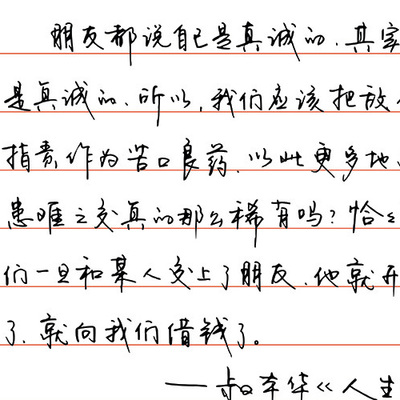 朋友都说自己是真诚的.其实
是真诚的.所以,我们应该把敌
指责作为苦口良药.以此更多地
患难之交真的那么稀有吗?恰
们一旦和某人交上了朋友.他就开
了.就向我们借钱了。
——叔本华《人生